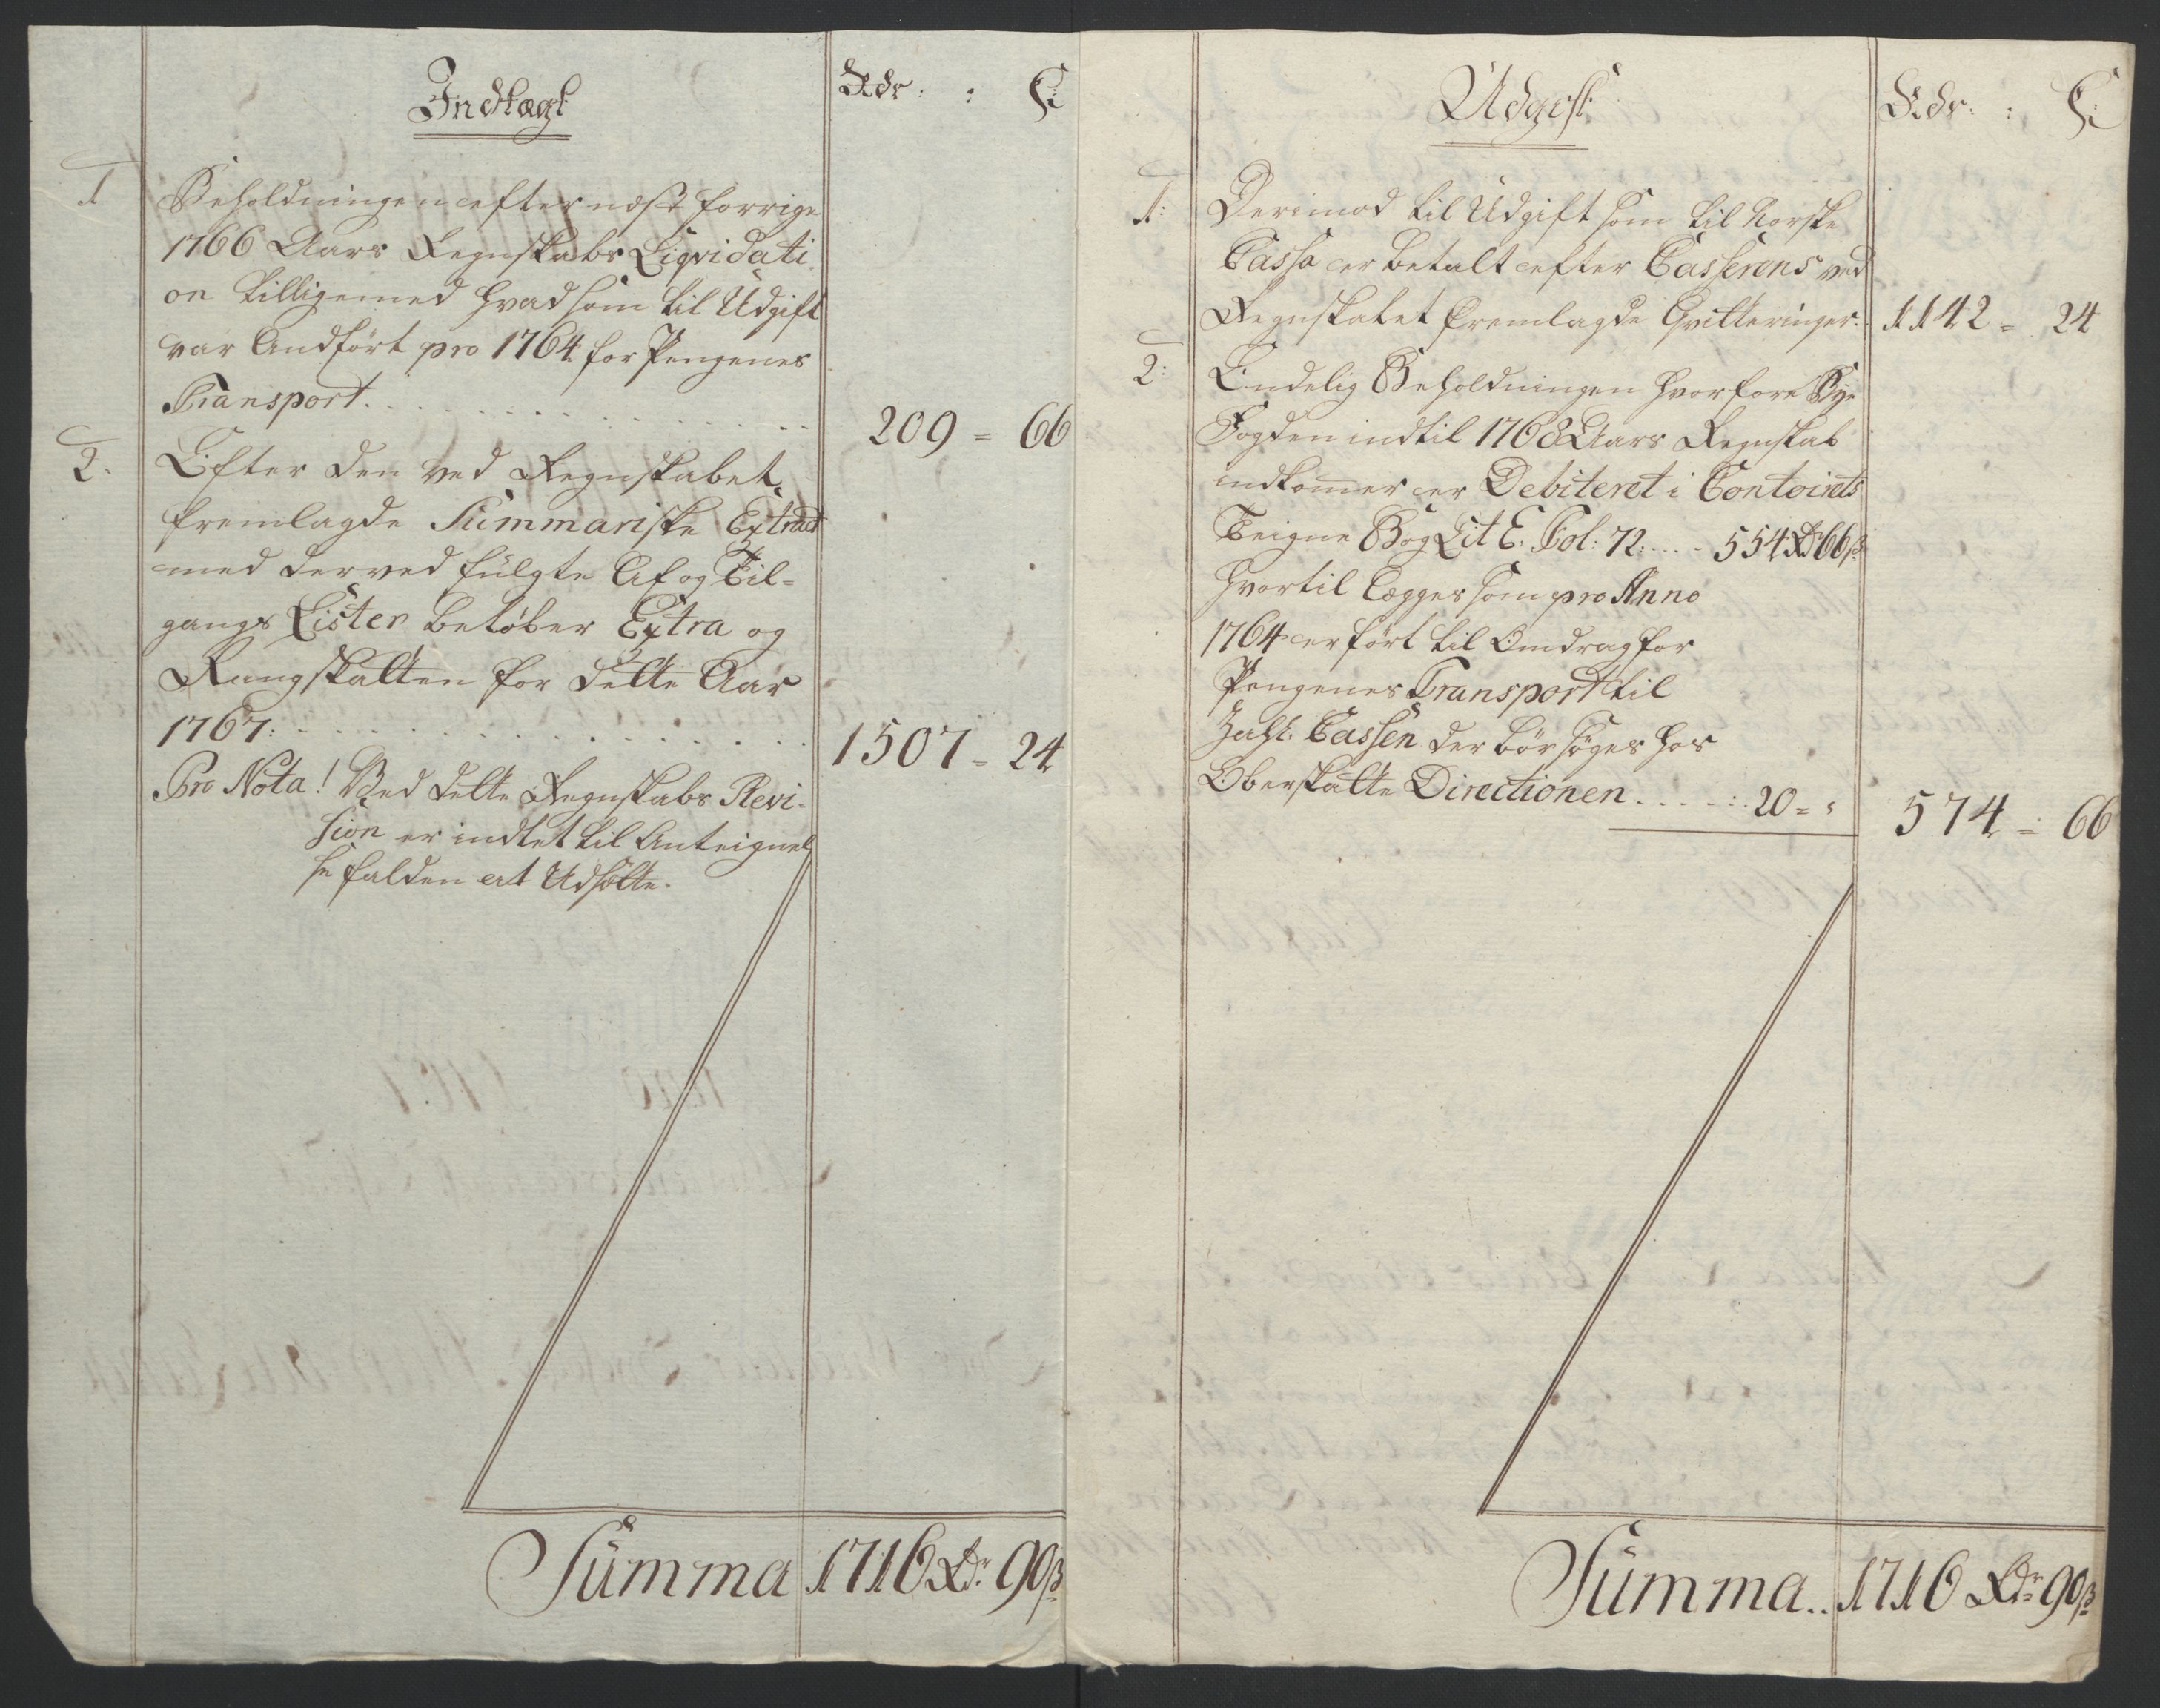 Indtægt
Rdr : ß
1 Beholdningen efter næst forrige
1766 Aars Regnskabs Liqvidati
on tilligemed hvad som til Udgift
var Andført pro 1764 for Pengenes
Transport. . . . . 209 = 66
2. Efter den ved Regnskabet
fremlagde Summariske Extract
med derved fulgte Af og Til-
gangs Lister beløber Extra og
Rangskatten for dette Aar
1767: . . . . . 1507 = 24
Pro Nota! Ved dette Regnskabs Revi-
sion er indtet til Anteignel
se falden at Udsætte.
Summa 1716 Rdr. 90 ß
Udgift
Rdr. : ß
1: Derimod til Udgift som til Norske
Cassa er betalt efter Casserens ved
Regnskabet fremlagde Qvitteringer: 1142 = 24
2: Endelig Beholdningen hvorfore Bye
Fogden indtil 1768 Aars Regnskab
indkommer er Debiteret i Contoirets
Teigne Bog Lit E. Fol: 72. . . . 554 Rdr 66 ß
hvortil Lægges som pro Anno
1764 er ført til Omdrag for
Pengenes Transport til
Zahl. Cassen der bør søges hos
Oberskatte Directionen . . . . . 20 = " 574 = 66
Summa.. 1716 Rdr 90 ß